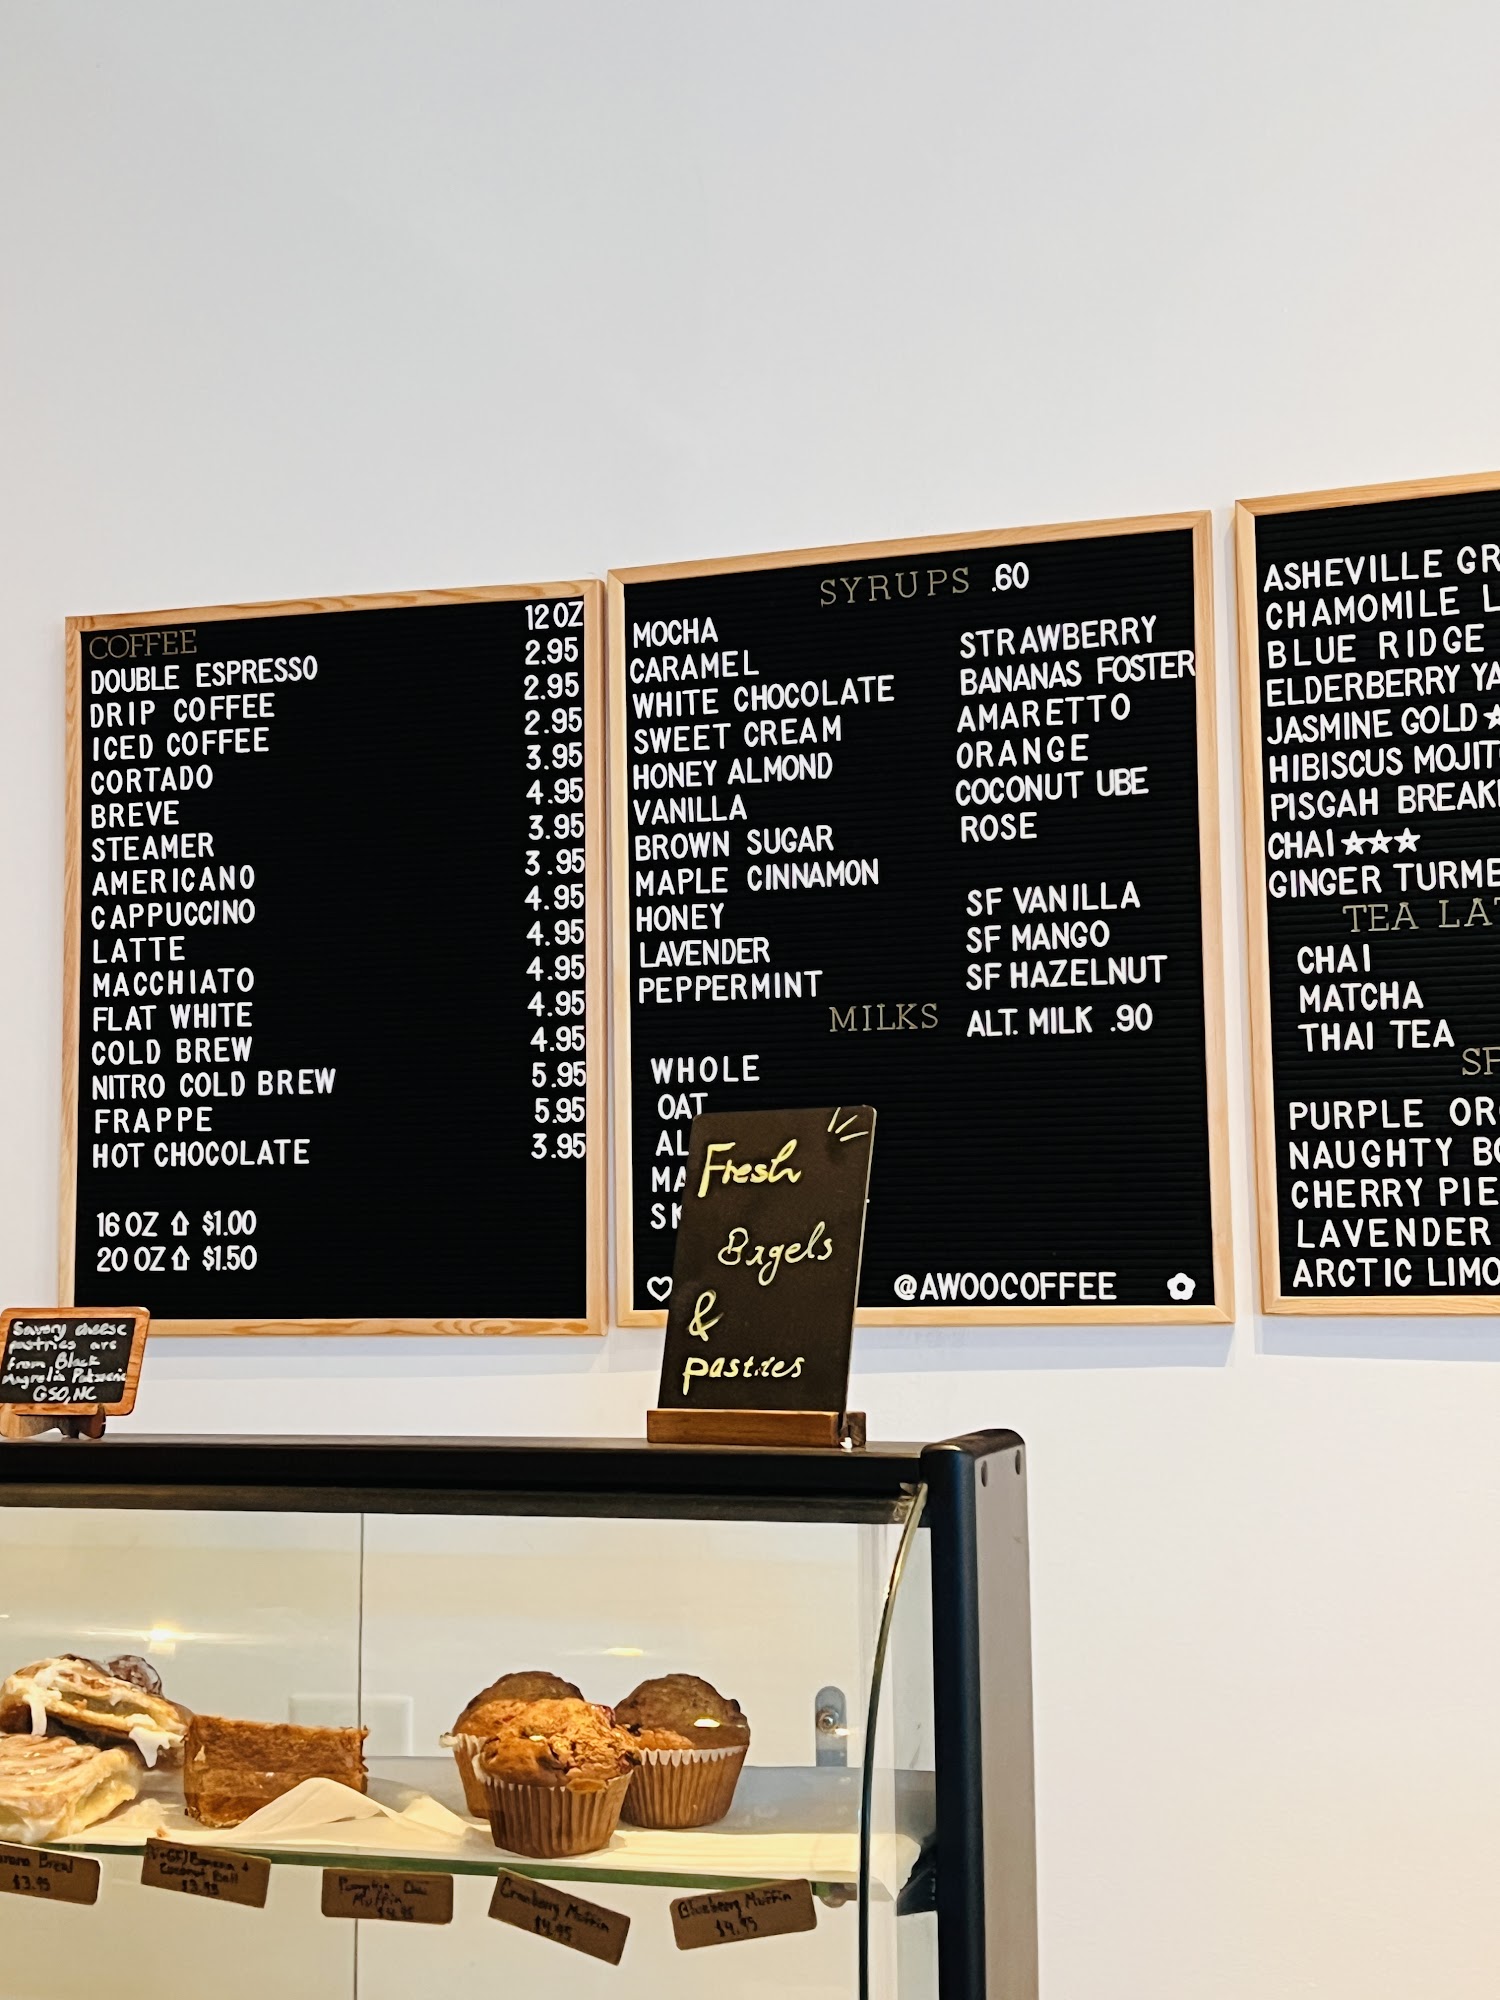 COFFEE 12 OZ
DOUBLE ESPRESSO 2.95
DRIP COFFEE 2.95
ICED COFFEE 2.95
CORTADO 3.95
BREVE 4.95
STEAMER 3.95
AMERICANO 3.95
CAPPUCCINO 4.95
LATTE 4.95
MACCHIATO 4.95
FLAT WHITE 4.95
COLD BREW 4.95
NITRO COLD BREW 5.95
FRAPPE 5.95
HOT CHOCOLATE 3.95
16 OZ ⇧ $1.00
20 OZ ⇧ $1.50
SYRUPS .60
MOCHA
CARAMEL
WHITE CHOCOLATE
SWEET CREAM
HONEY ALMOND
VANILLA
BROWN SUGAR
MAPLE CINNAMON
HONEY
LAVENDER
PEPPERMINT
STRAWBERRY
BANANAS FOSTER
AMARETTO
ORANGE
COCONUT UBE
ROSE
SF VANILLA
SF MANGO
SF HAZELNUT
MILKS ALT. MILK .90
WHOLE
OAT
AL
MA
SK
@AWOOCOFFEE
ASHEVILLE GR
CHAMOMILE L
BLUE RIDGE
ELDERBERRY YA
JASMINE GOLD ★
HIBISCUS MOJIT
PISGAH BREAK
CHAI ★★★
GINGER TURME
TEA LAT
CHAI
MATCHA
THAI TEA
SP
PURPLE OR
NAUGHTY BO
CHERRY PIE
LAVENDER
ARCTIC LIMO
Fresh
Bagels
&
pastries
Savory cheese
pastries are
from Black
Magnolia Patisserie
GSO, NC
Bread
$3.95
Banana +
Coconut
$3.95
Pumpkin Chai
Muffin
$4.95
Cranberry Muffin
$4.95
Blueberry Muffin
$4.95